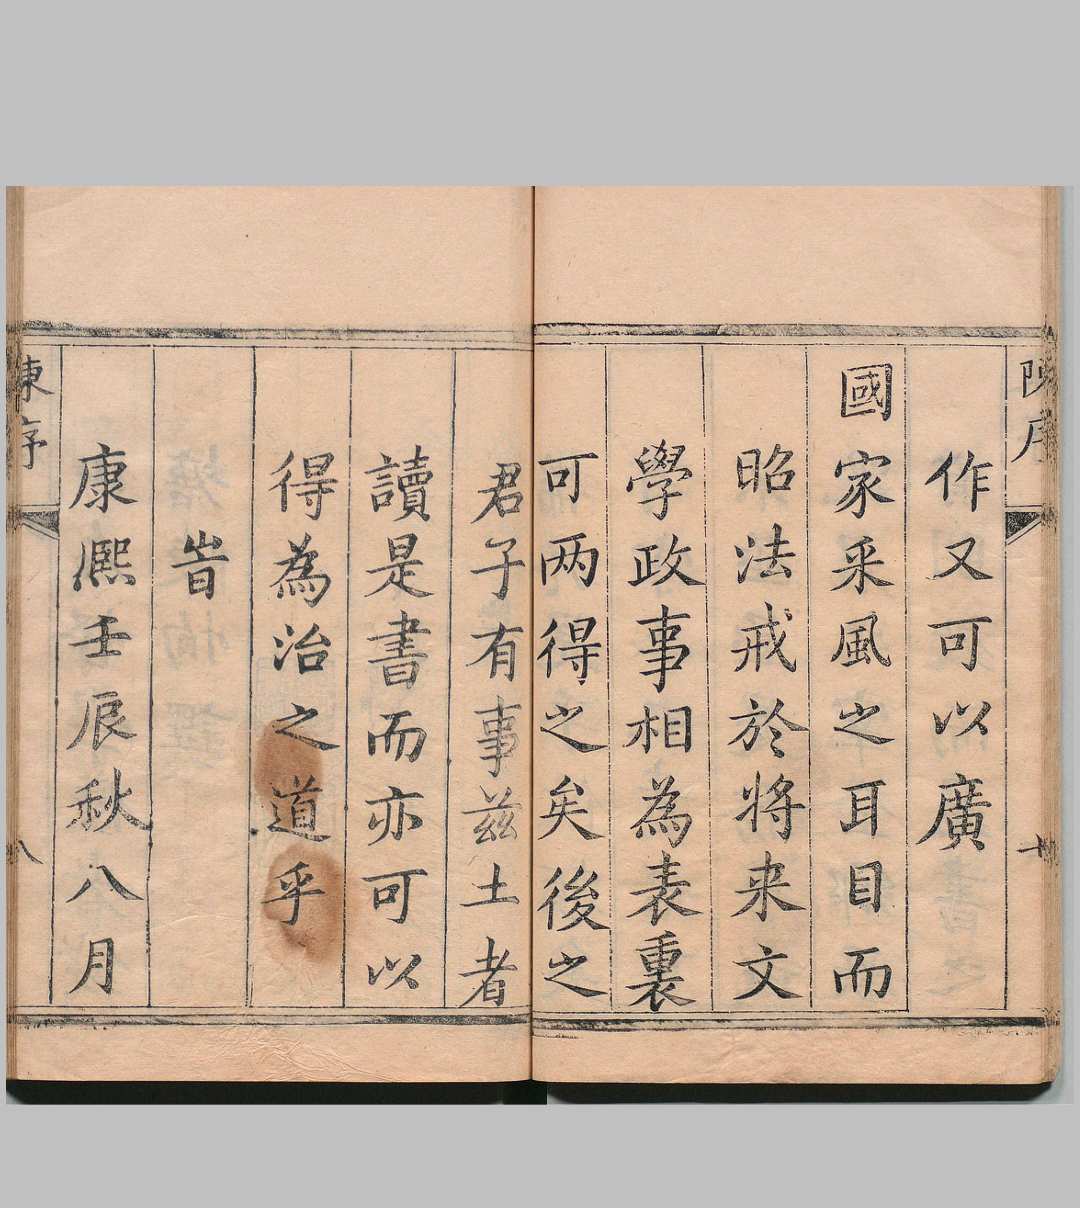 陳序
作又可以廣
國家采風之耳目而
昭法戒於將来文
學政事相為表裏
可两得之矣後之
君子有事兹土者
讀是書而亦可以
得為治之道乎
旹
康熈壬辰秋八月
陳序
八